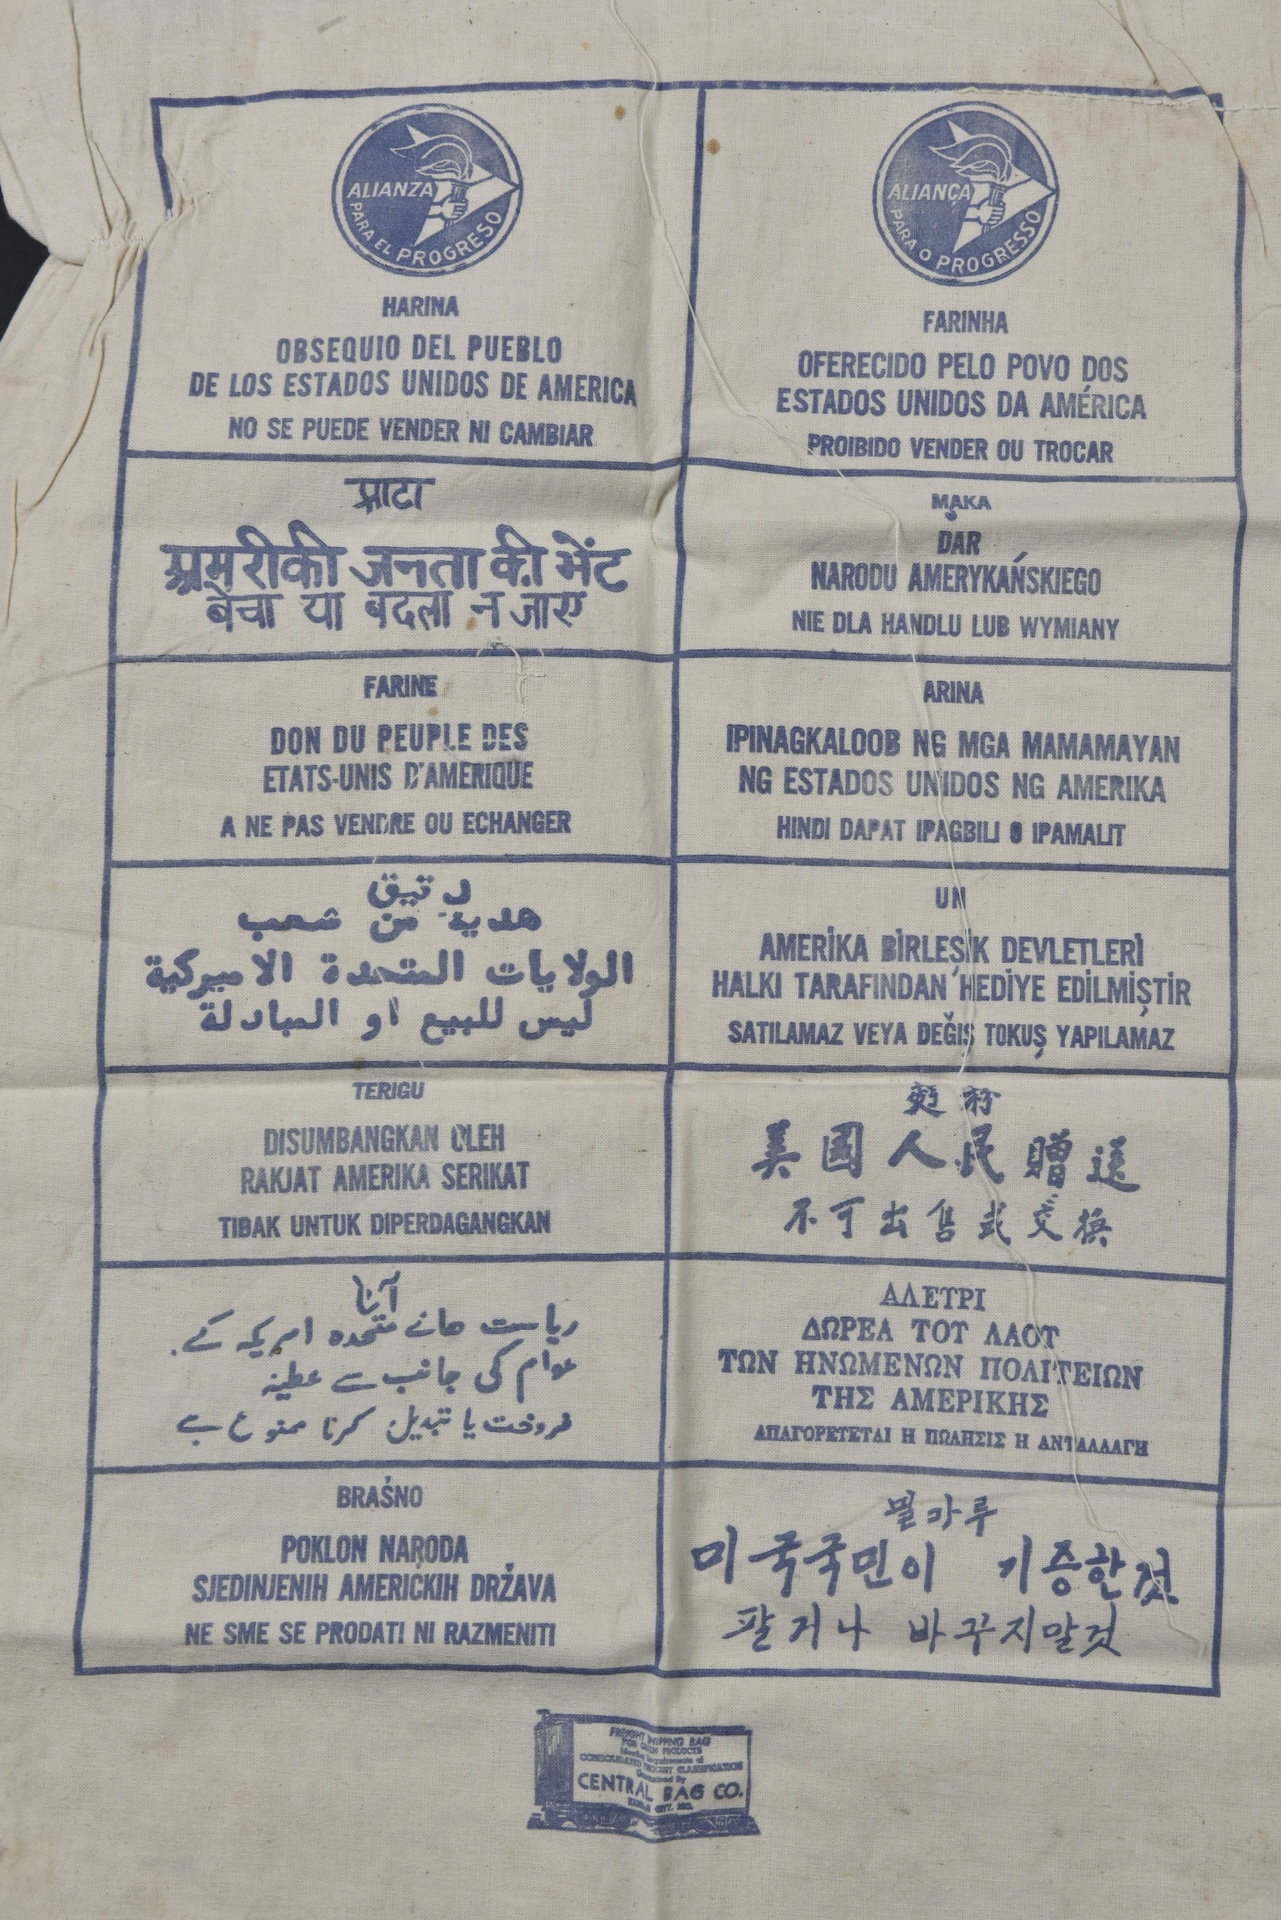 ALIANZA
PARA EL PROGRESO
HARINA
OBSEQUIO DEL PUEBLO
DE LOS ESTADOS UNIDOS DE AMERICA
NO SE PUEDE VENDER NI CAMBIAR
ALIANÇA
PARA O PROGRESSO
FARINHA
OFERECIDO PELO POVO DOS
ESTADOS UNIDOS DA AMÉRICA
PROIBIDO VENDER OU TROCAR
आटा
अमरीकी जनता की भेंट
बेचा या बदला न जाए
MĄKA
DAR
NARODU AMERYKAŃSKIEGO
NIE DLA HANDLU LUB WYMIANY
FARINE
DON DU PEUPLE DES
ETATS-UNIS D'AMERIQUE
A NE PAS VENDRE OU ECHANGER
ARINA
IPINAGKALOOB NG MGA MAMAMAYAN
NG ESTADOS UNIDOS NG AMERIKA
HINDI DAPAT IPAGBILI O IPAMALIT
دقيق
هدية من شعب
الولايات المتحدة الاميركية
ليس للبيع او المبادلة
UN
AMERİKA BİRLEŞİK DEVLETLERİ
HALKI TARAFINDAN HEDİYE EDİLMİŞTİR
SATILAMAZ VEYA DEĞİŞ TOKUŞ YAPILAMAZ
TERIGU
DISUMBANGKAN OLEH
RAKJAT AMERIKA SERIKAT
TIBAK UNTUK DIPERDAGANGKAN
麵粉
美國人民贈送
不可出售或交換
آٹا
ریاست ہائے متحدہ امریکہ کے
عوام کی جانب سے عطیہ
فروخت یا تبدیل کرنا ممنوع ہے
ΑΛΕΤΡΙ
ΔΩΡΕΑ ΤΟΤ ΛΑΟΤ
ΤΩΝ ΗΝΩΜΕΝΩΝ ΠΟΛΙΤΕΙΩΝ
ΤΗΣ ΑΜΕΡΙΚΗΣ
ΑΠΑΓΟΡΕΤΕΤΑΙ Η ΠΩΛΗΣΙΣ Η ΑΝΤΑΛΛΑΓΗ
BRAŚNO
POKLON NARODA
SJEDINJENIH AMERIČKIH DRŽAVA
NE SME SE PRODATI NI RAZMENITI
밀가루
미국국민이 기증한것
팔거나 바꾸지말것
FREIGHT SHIPPING BAG
FOR GRAIN PRODUCTS
Meeting Requirements of
CONSOLIDATED FREIGHT CLASSIFICATION
Guaranteed By
CENTRAL BAG CO.
KANSAS CITY, MO.